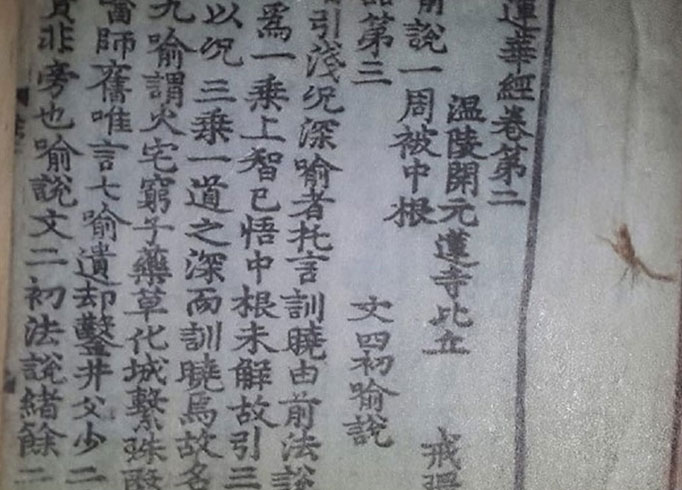 蓮華經卷第二
温陵開元蓮寺比丘 戒環
前說一周被中根
品第三 文四初喻說
引淺況深喻者托言訓曉由前法說
爲一乘上智已悟中根未解故引三
以况三乘一道之深而訓曉焉故名
九喻謂火宅窮子藥草化城繫珠
舊師舊唯言七喻遺却鑿井父少二
實非旁也喻說文二初法說緖餘二